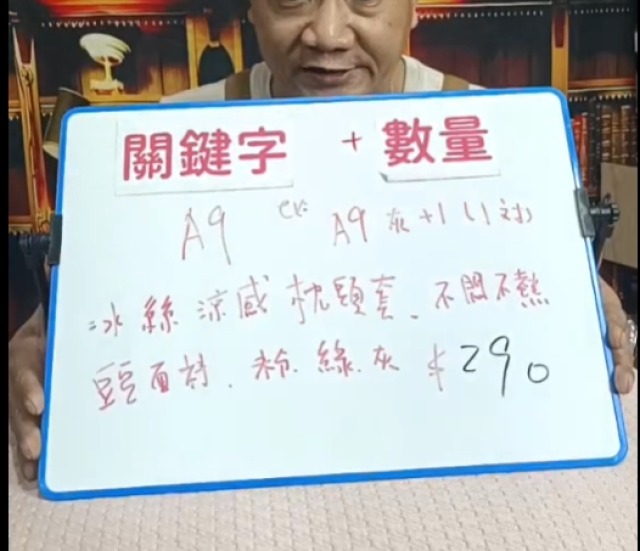 關鍵字 + 數量
A9 ex: A9 灰+1 (1対)
冰絲涼感枕頭套、不悶不熱
豆豆面材、粉、綠、灰 $290